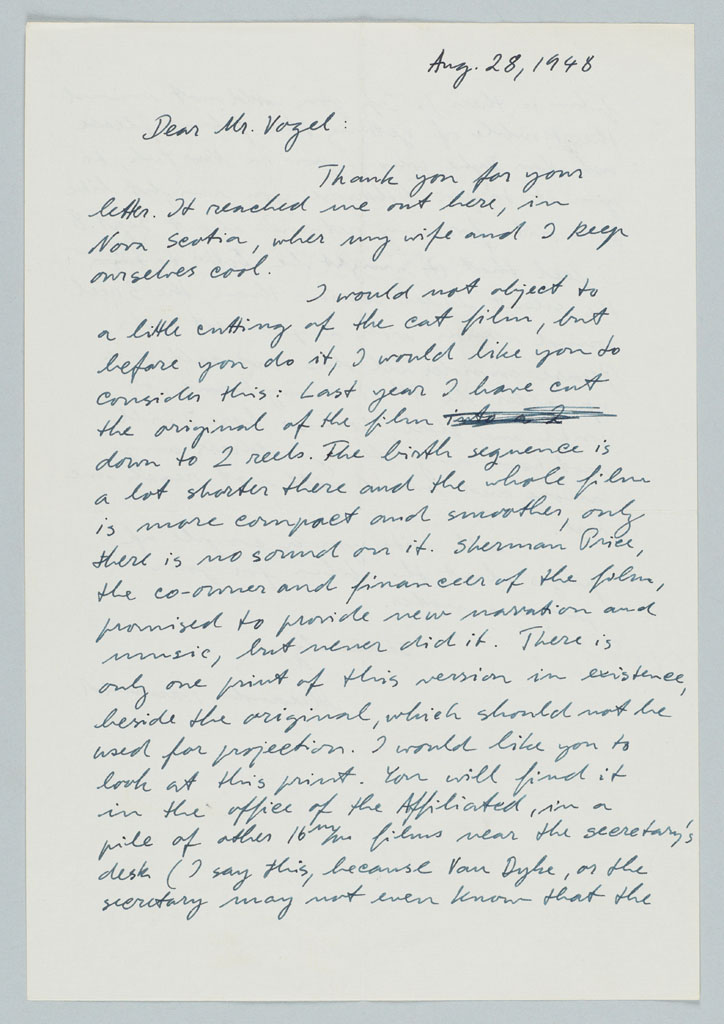 Aug. 28, 1948
Dear Mr. Vogel:
Thank you for your
letter. It reached me out here, in
Nova Scotia, wher my wife and I keep
ourselves cool.
I would not object to
a little cutting of the cat film, but
before you do it, I would like you to
consider this: Last year I have cut
the original of the film into a 2
down to 2 reels. The birth sequence is
a lot shorter there and the whole film
is more compact and smoother, only
there is no sound on it. Sherman Price,
the co-owner and financeer of the film,
promised to provide new narration and
music, but never did it. There is
only one print of this version in existence,
beside the original, which should not be
used for projection. I would like you to
look at this print. You will find it
in the office of the Affiliated, in a
pile of other 16 m/m films near the secretary's
desk (I say this, because Van Dyke, or the
secretary may not even know that the